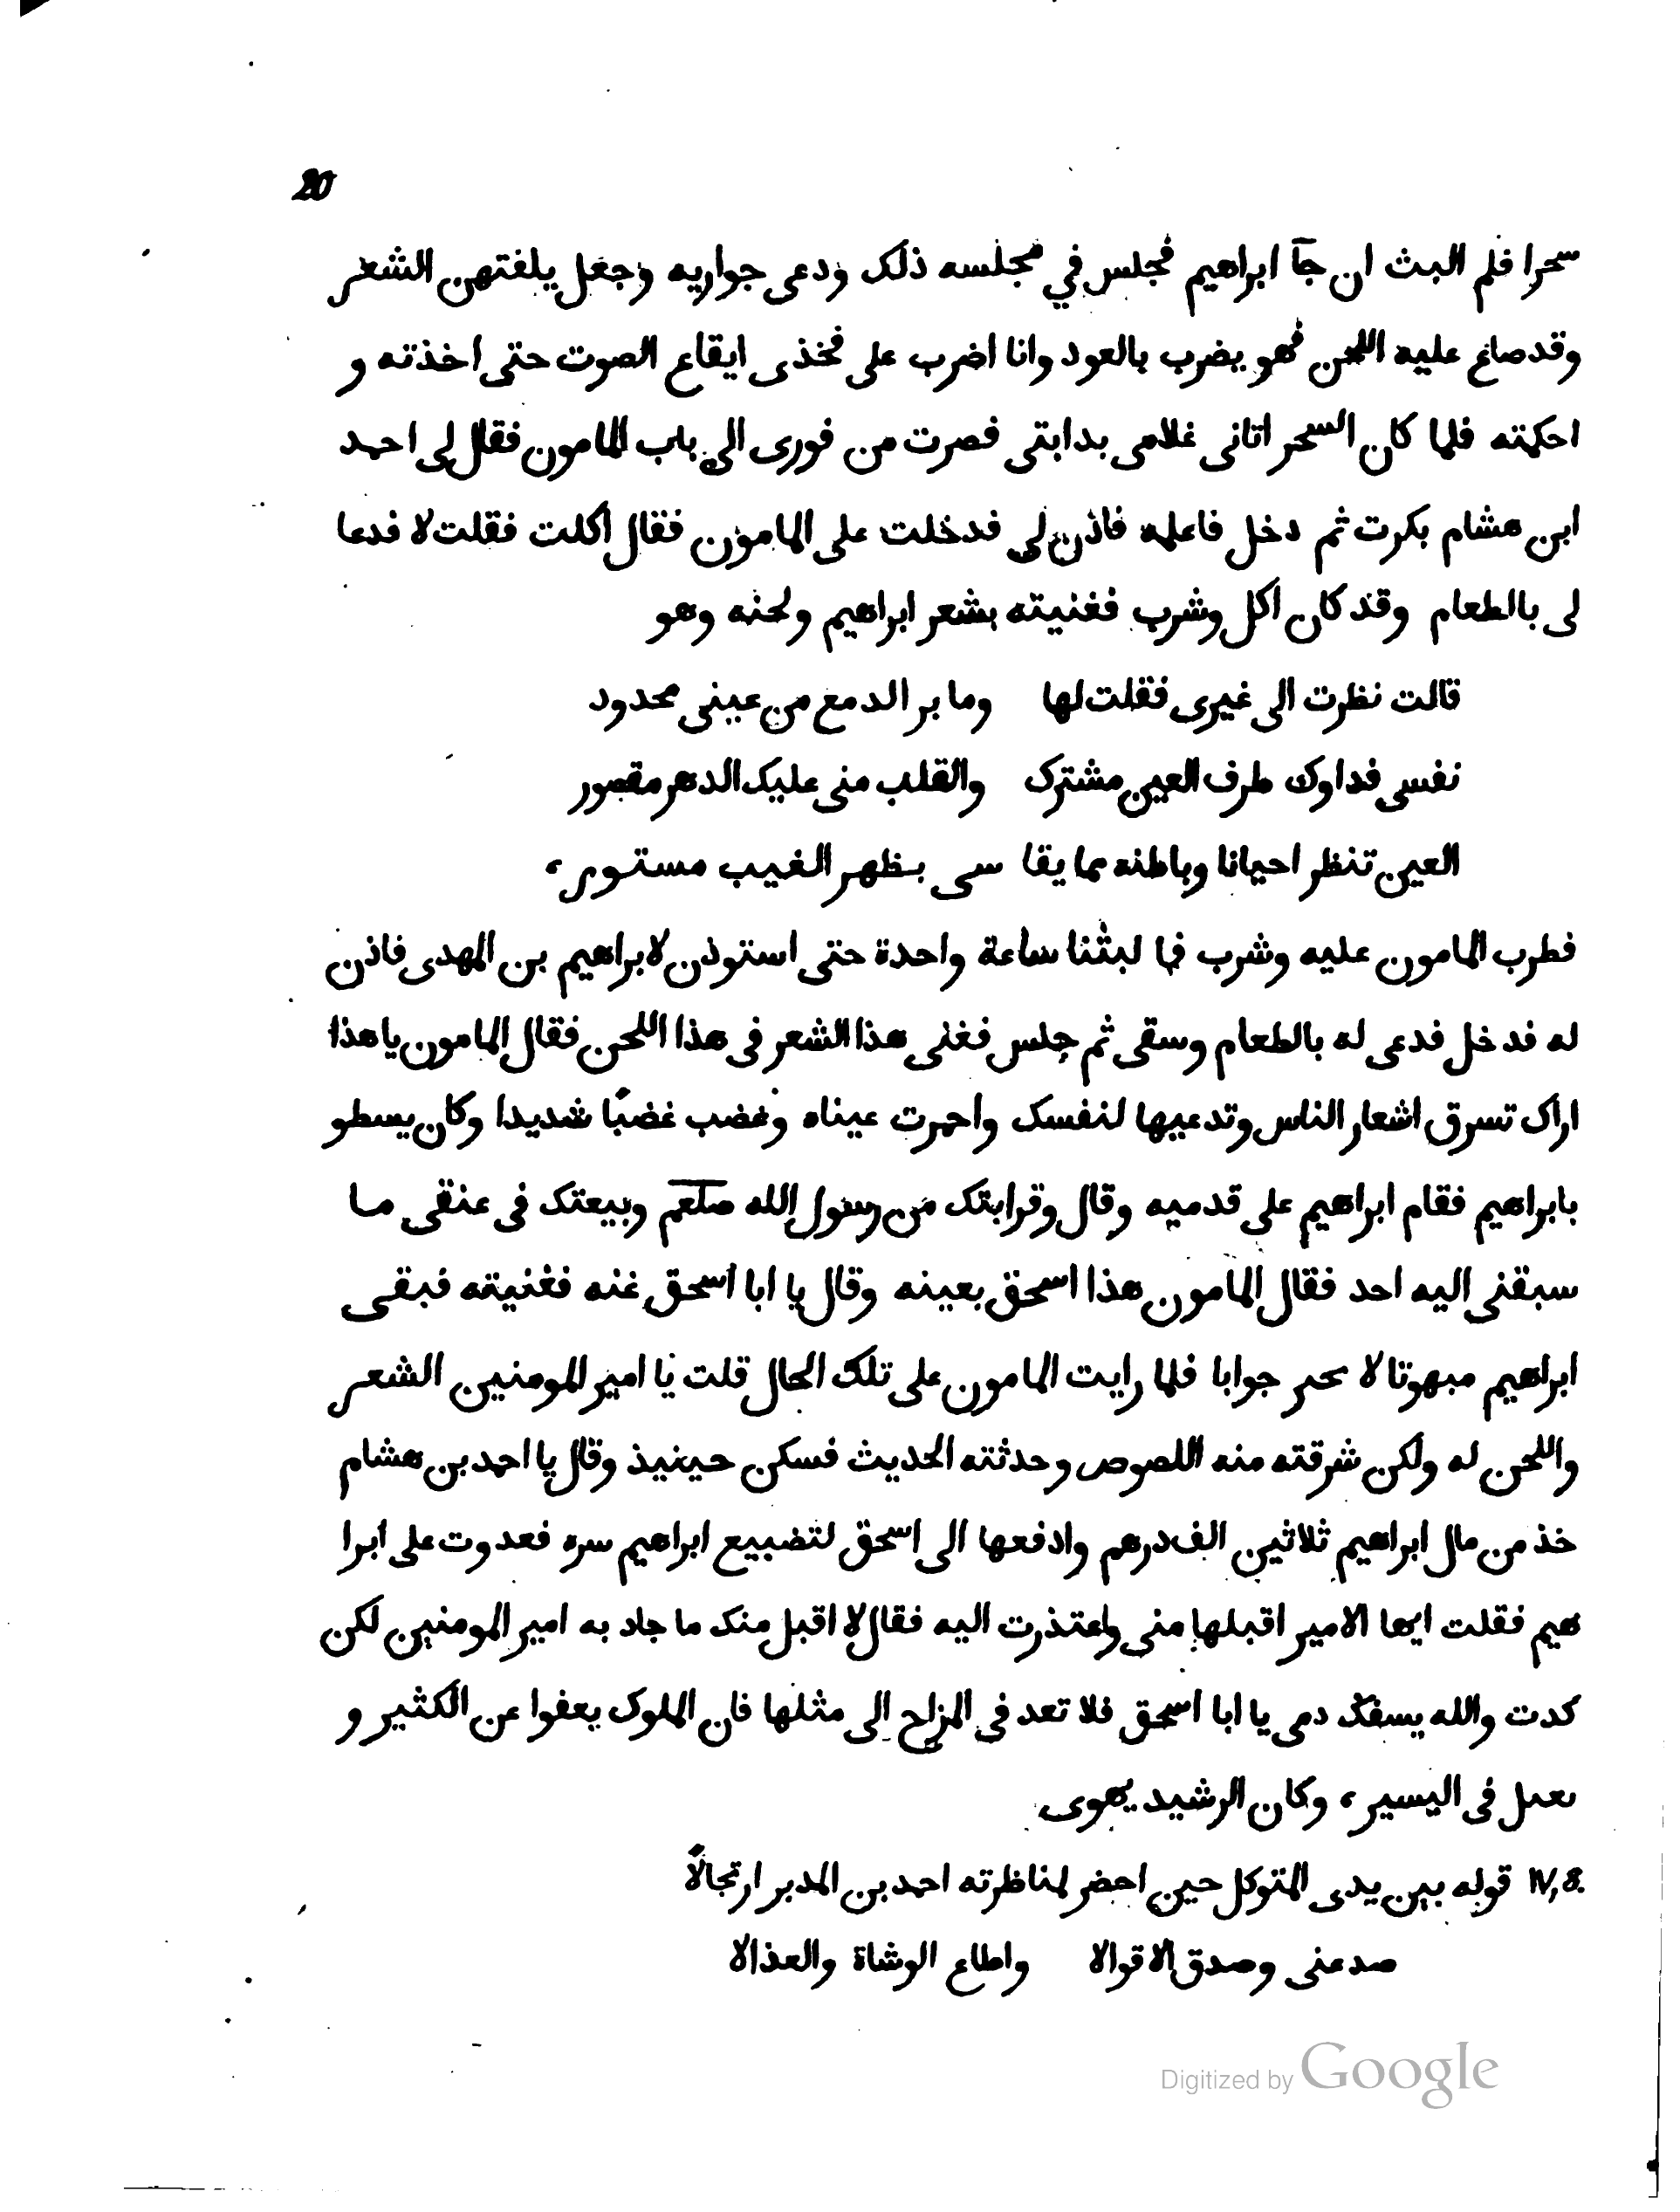 20
سحرا فلم البث ان جآ ابراهيم فجلس في مجلسه ذلك ودعى جواريه وجعل يلغتهن الشعر
وقد صاغ عليه اللحن فهو يضرب بالعود وانا اضرب على فخذى ايقاع الصوت حتى اخذته و
احكمته فلما كان السحر اتانى غلامى بدابتى فصرت من فورى الى باب المامون فقال لى احمد
ابن هشام بكرت ثم دخل فاعلمه فاذن لى فدخلت على المامون فقال اكلت فقلت لا فدعا
لى بالطعام وقد كان اكل وشرب فغنيته بشعر ابراهيم ولحنه وهو
قالت نظرت الى غيرى فقلت لها وما بر الدمع من عينى محدود
نفسى فداوك طرف العين مشترك والقلب منى عليك الدهر مقصور
العين تنظر احيانا وباطنه مما يقا سى بظهر الغيب مستور،
فطرب المامون عليه وشرب فما لبثنا ساعة واحدة حتى استوذن لابراهيم بن المهدى فاذن
له فدخل فدعى له بالطعام وسقى ثم جلس فغنى هذا الشعر فى هذا اللحن فقال المامون يا هذا
اراك تسرق اشعار الناس وتدعيها لنفسك واحمرت عيناه وغضب غضبًا شديدا وكان يسطو
بابراهيم فقام ابراهيم على قدميه وقال وقرابتك من رسول الله صلعم وبيعتك فى عنقى ما
سبقنى اليه احد فقال المامون هذا اسحق بعينه وقال يا ابا اسحق غنه فغنيته فبقى
ابراهيم مبهوتا لا يحير جوابا فلما رايت المامون على تلك الحال قلت يا امير المومنين الشعر
واللحن له ولكن شرقته منه اللصوص وحدثته الحديث فسكن حينيذ وقال يا احمد بن هشام
خذ من مال ابراهيم ثلاثين الف درهم وادفعها الى اسحق لتضييع ابراهيم سره فعدوت على ابرا
هيم فقلت ايها الامير اقبلها منى واعتذرت اليه فقال لا اقبل منك ما جاد به امير المومنين لكن
كدت والله يسفك دمى يا ابا اسحق فلا تعد فى المزاح الى مثلها فان الملوك يعفوا عن الكثير و
فى اليسير، وكان الرشيد يهوى
IV,8. قوله بين يدى المتوكل حين احضر لمناظرته احمد بن المدبر ارتجالًا
صد عنى وصدق الاقوالا واطاع الوشاة والعذالا
Digitized by Google